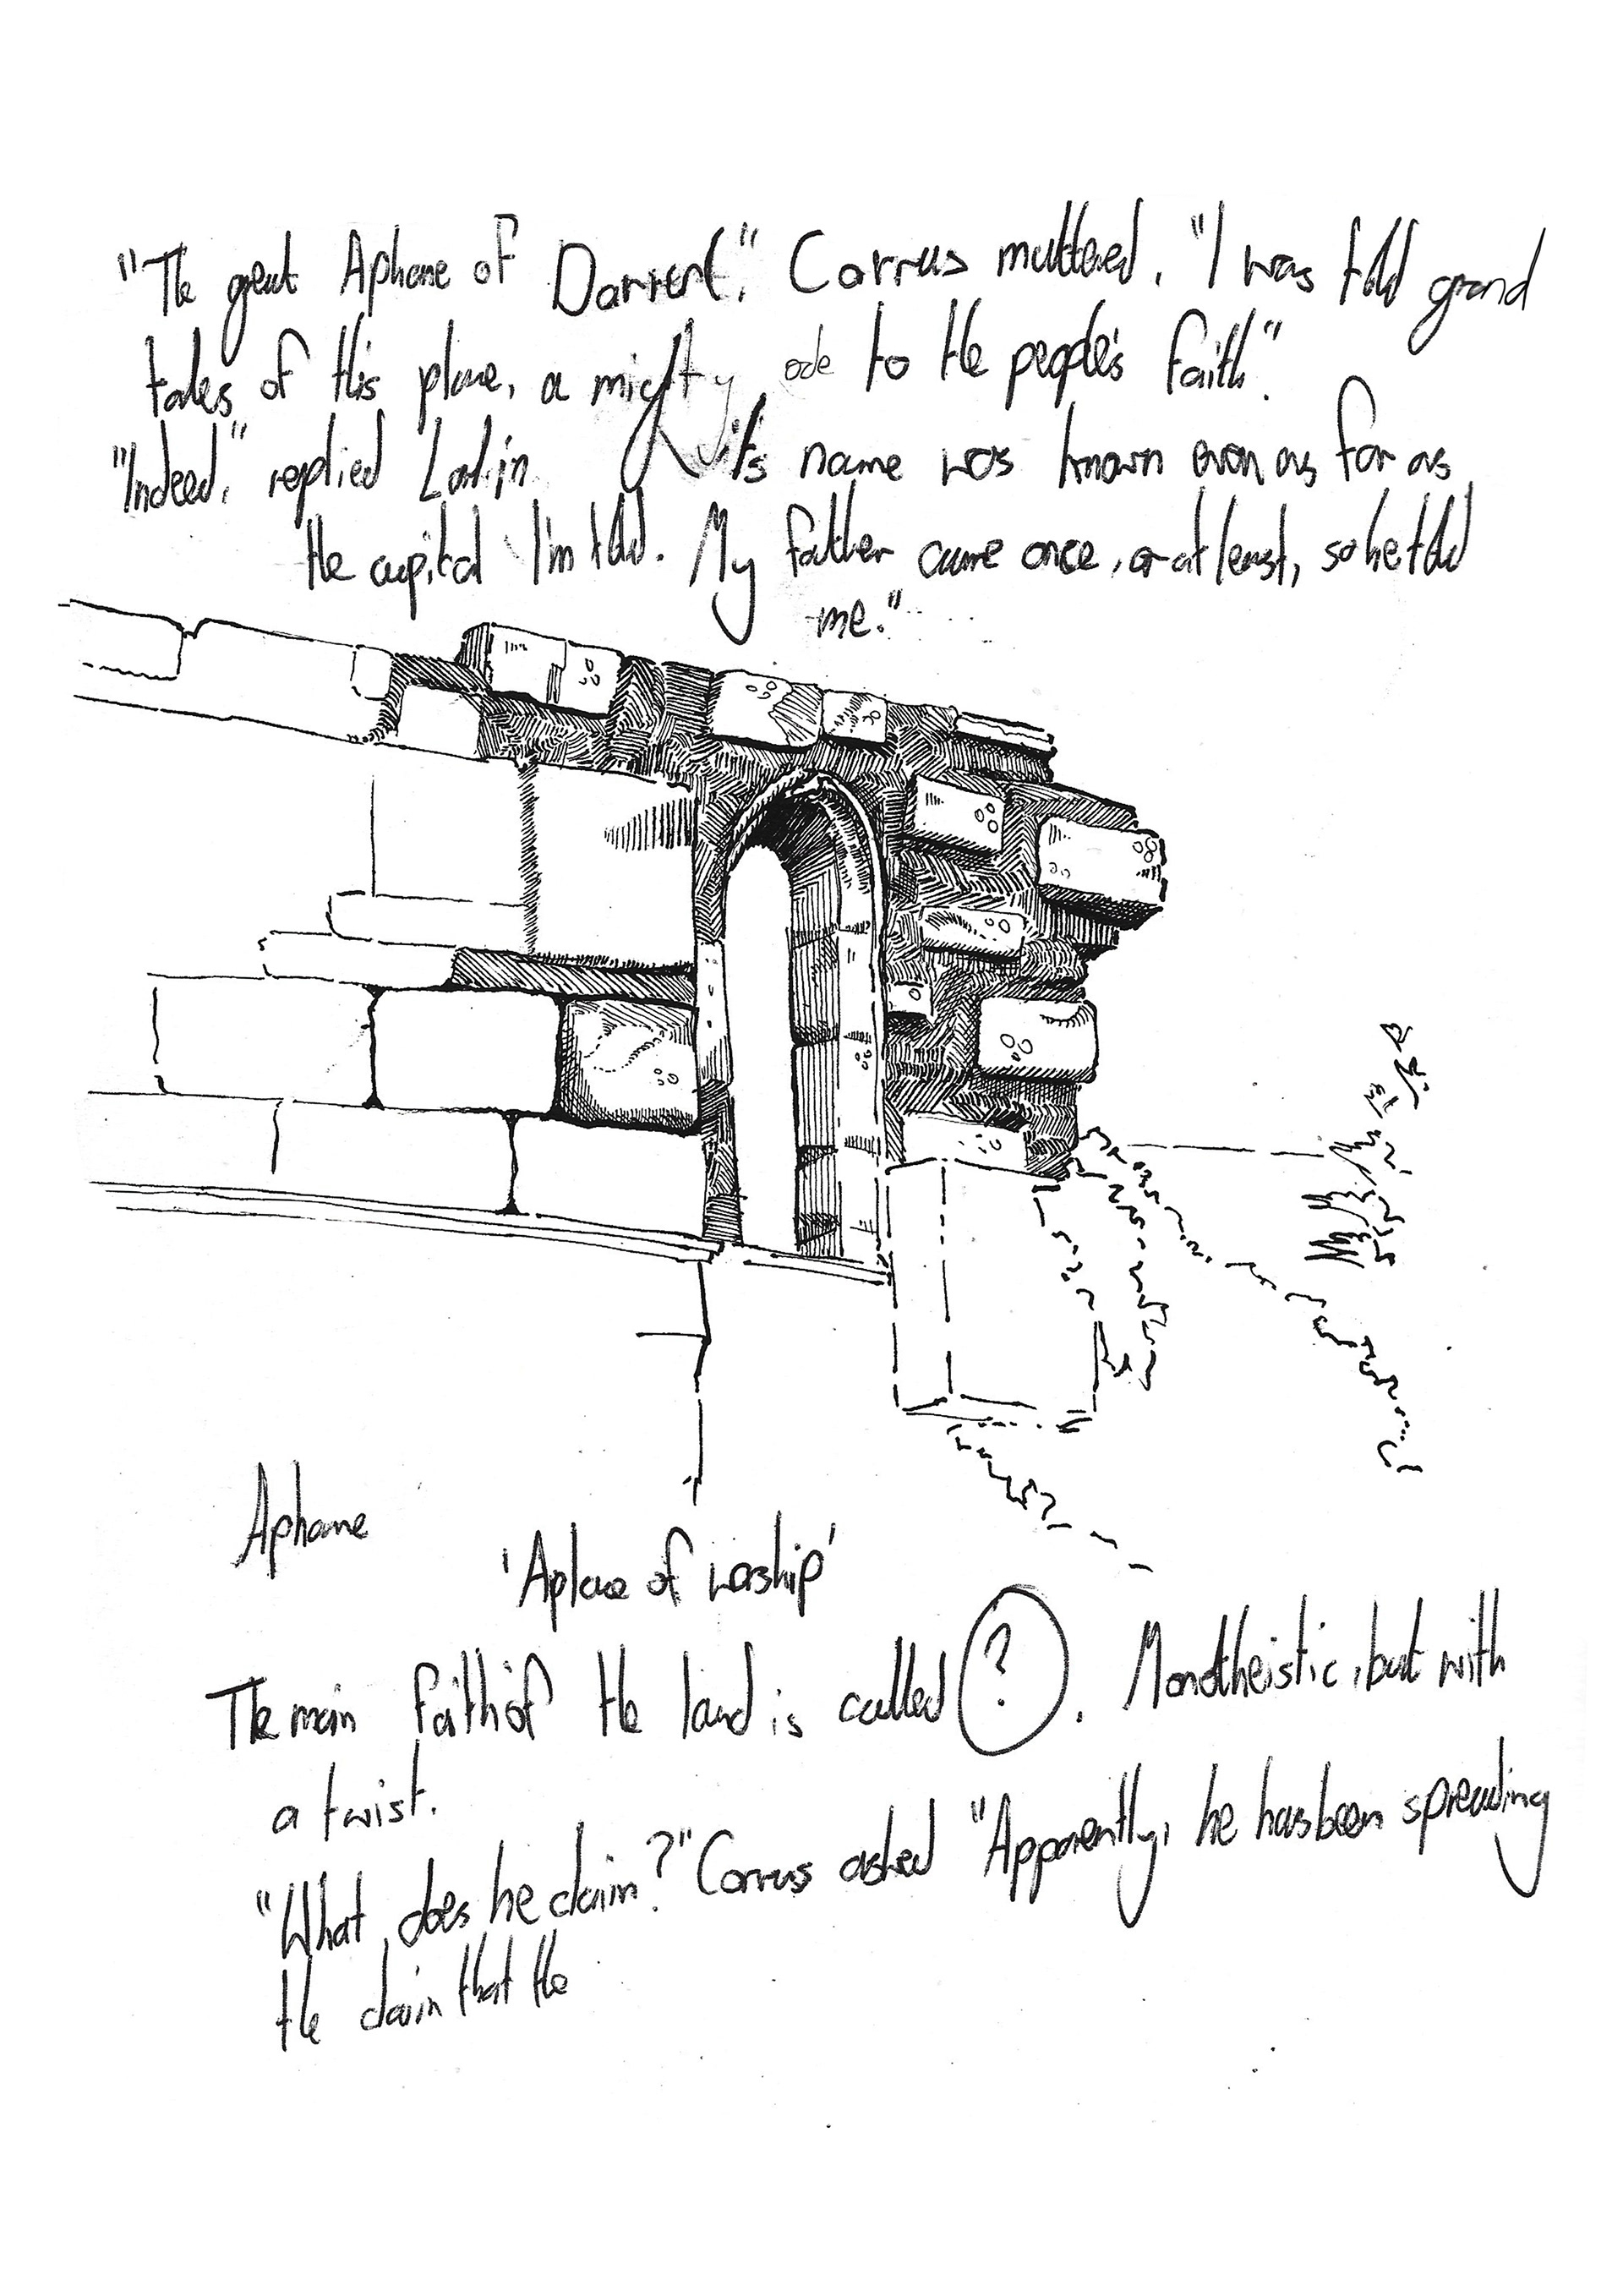 "The great Aphane of Darrent," Corrus muttered. "I was told grand
tales of this place, a mighty ode to the people's faith."
"Indeed," replied its name was known even as far as
the capital I'm told. My father came once, or at least, so he told
me."
Aphane
'A place of worship'
The main faith of the land is called ? . Monotheistic, but with
a twist.
"What does he claim?" Corrus asked "Apparently, he has been spreading
the claim that the